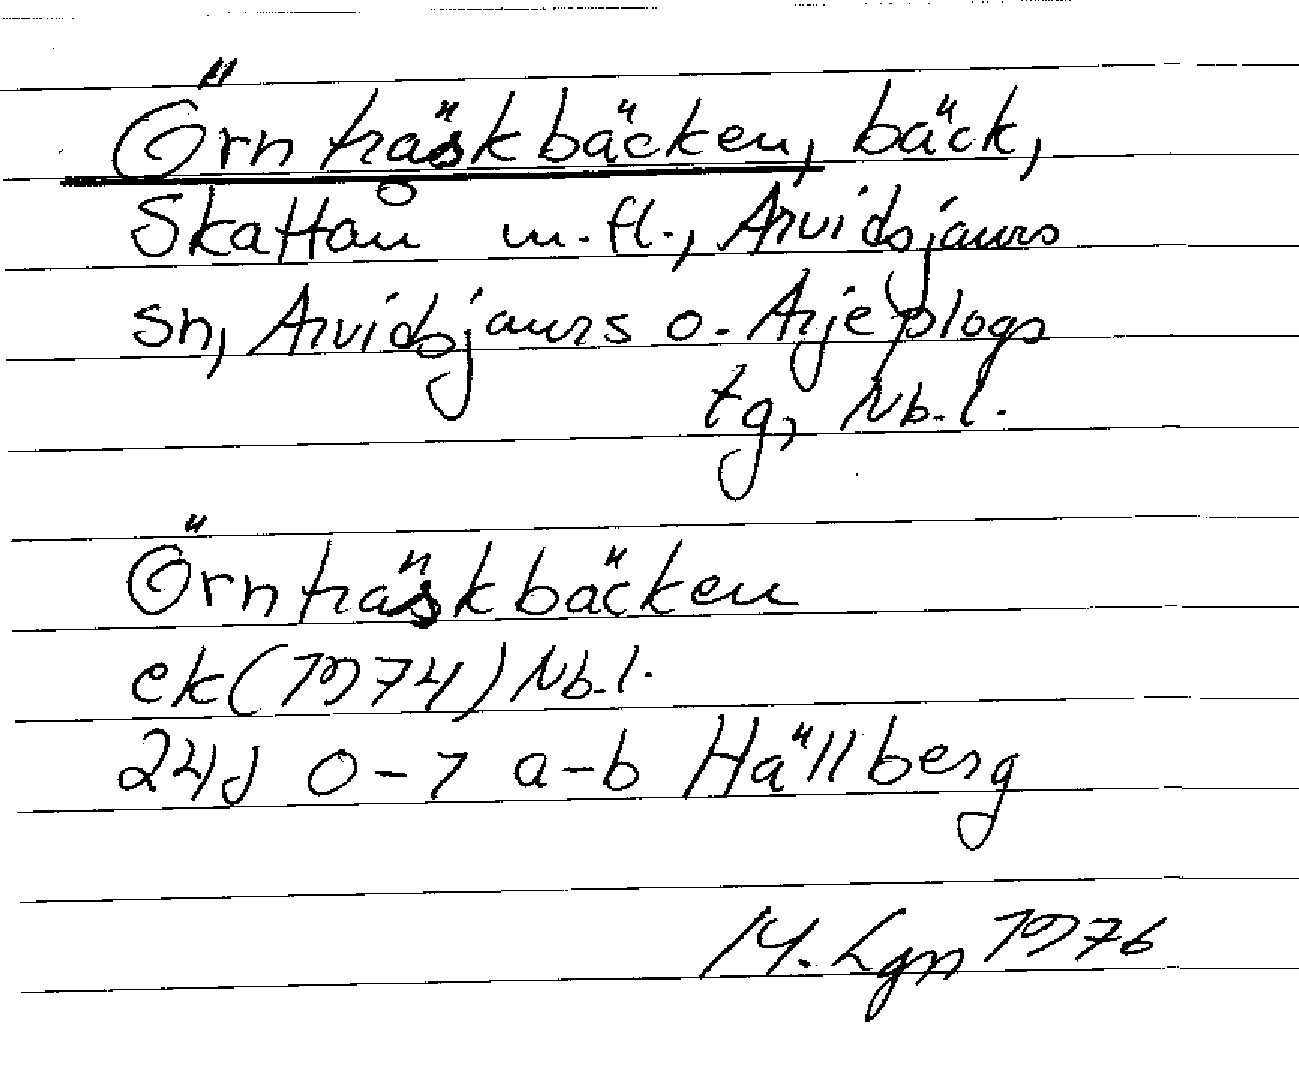 Örnträskbäcken, bäck,
Skattån m.fl., Arvidsjaurs
sn, Arvidsjaurs o. Arjeplogs
tg, Nb.l.
Örnträskbäcken
ek (1974) Nb.l.
24J 0-1 a-b Hällberg
M. Lgn 1976